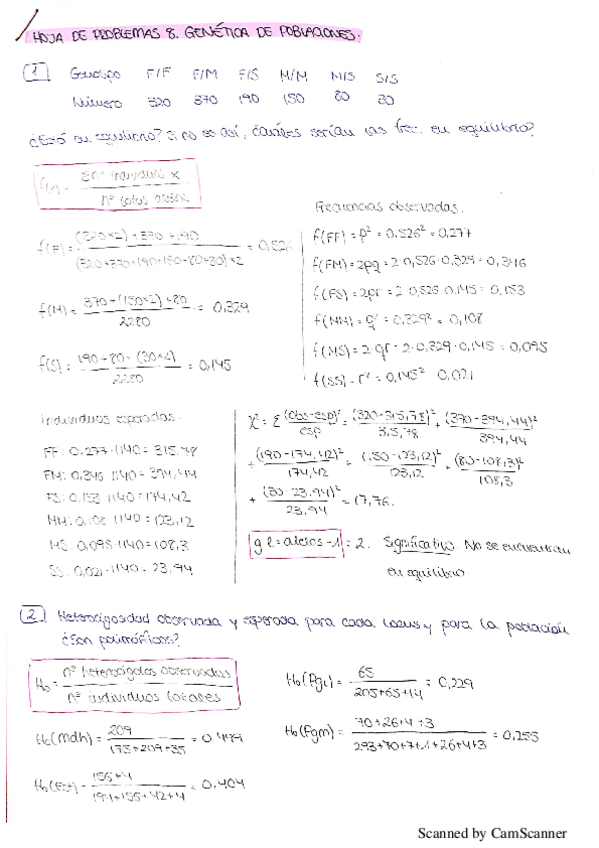 HOJA DE PROBLEMAS 8. GENÉTICA DE POBLACIONES.
1 Genotipo F/F F/M F/S M/M M/S S/S
Número 320 370 190 150 80 30
¿Está en equilibrio? Si no es así, ¿cuáles serían las frec. en equilibrio?
f(x) = Σnº individuos x / nº total alelos
f(F) = (320×2)+370+190 / (320+370+190+150+80+30)×2 = 0,526
f(M) = 370+(150×2)+80 / 2280 = 0,329
f(S) = 190+80+(30×2) / 2280 = 0,145
Frecuencias observadas.
f(FF) = p² = 0,526² = 0,277
f(FM) = 2pq = 2·0,526·0,329 = 0,346
f(FS) = 2pr = 2·0,526·0,145 = 0,153
f(MM) = q² = 0,329² = 0,108
f(MS) = 2·qr = 2·0,329·0,145 = 0,095
f(SS) = r² = 0,145² 0,021
Individuos esperados.
FF: 0,277·1140 = 315,78
FM: 0,346·1140 = 394,44
FS: 0,153·1140 = 174,42
MM: 0,108·1140 = 123,12
MS: 0,095·1140 = 108,3
SS: 0,021·1140 = 23,94
χ² = Σ (obs-esp)² / esp = (320-315,78)² / 315,78 + (370-394,44)² / 394,44
+ (190-174,42)² / 174,42 + (150-123,12)² / 123,12 + (80-108,3)² / 108,3
+ (30-23,94)² / 23,94 = 17,76.
gl = alelos-1 = 2. Significativo. No se encuentran
en equilibrio
2 Heterocigosidad observada y esperada para cada locus y para la población
¿Son polimórficos?
Ho = nº heterocigotos observados / nº individuos totales
Ho(Mdh) = 209 / 175+209+35 = 0,499
Ho(Est) = 156+4 / 194+156+42+4 = 0,404
Ho(Pgi) = 65 / 205+65+14 = 0,229
Ho(Pgm) = 70+26+4+3 / 293+70+7+1+26+4+3 = 0,255
Scanned by CamScanner